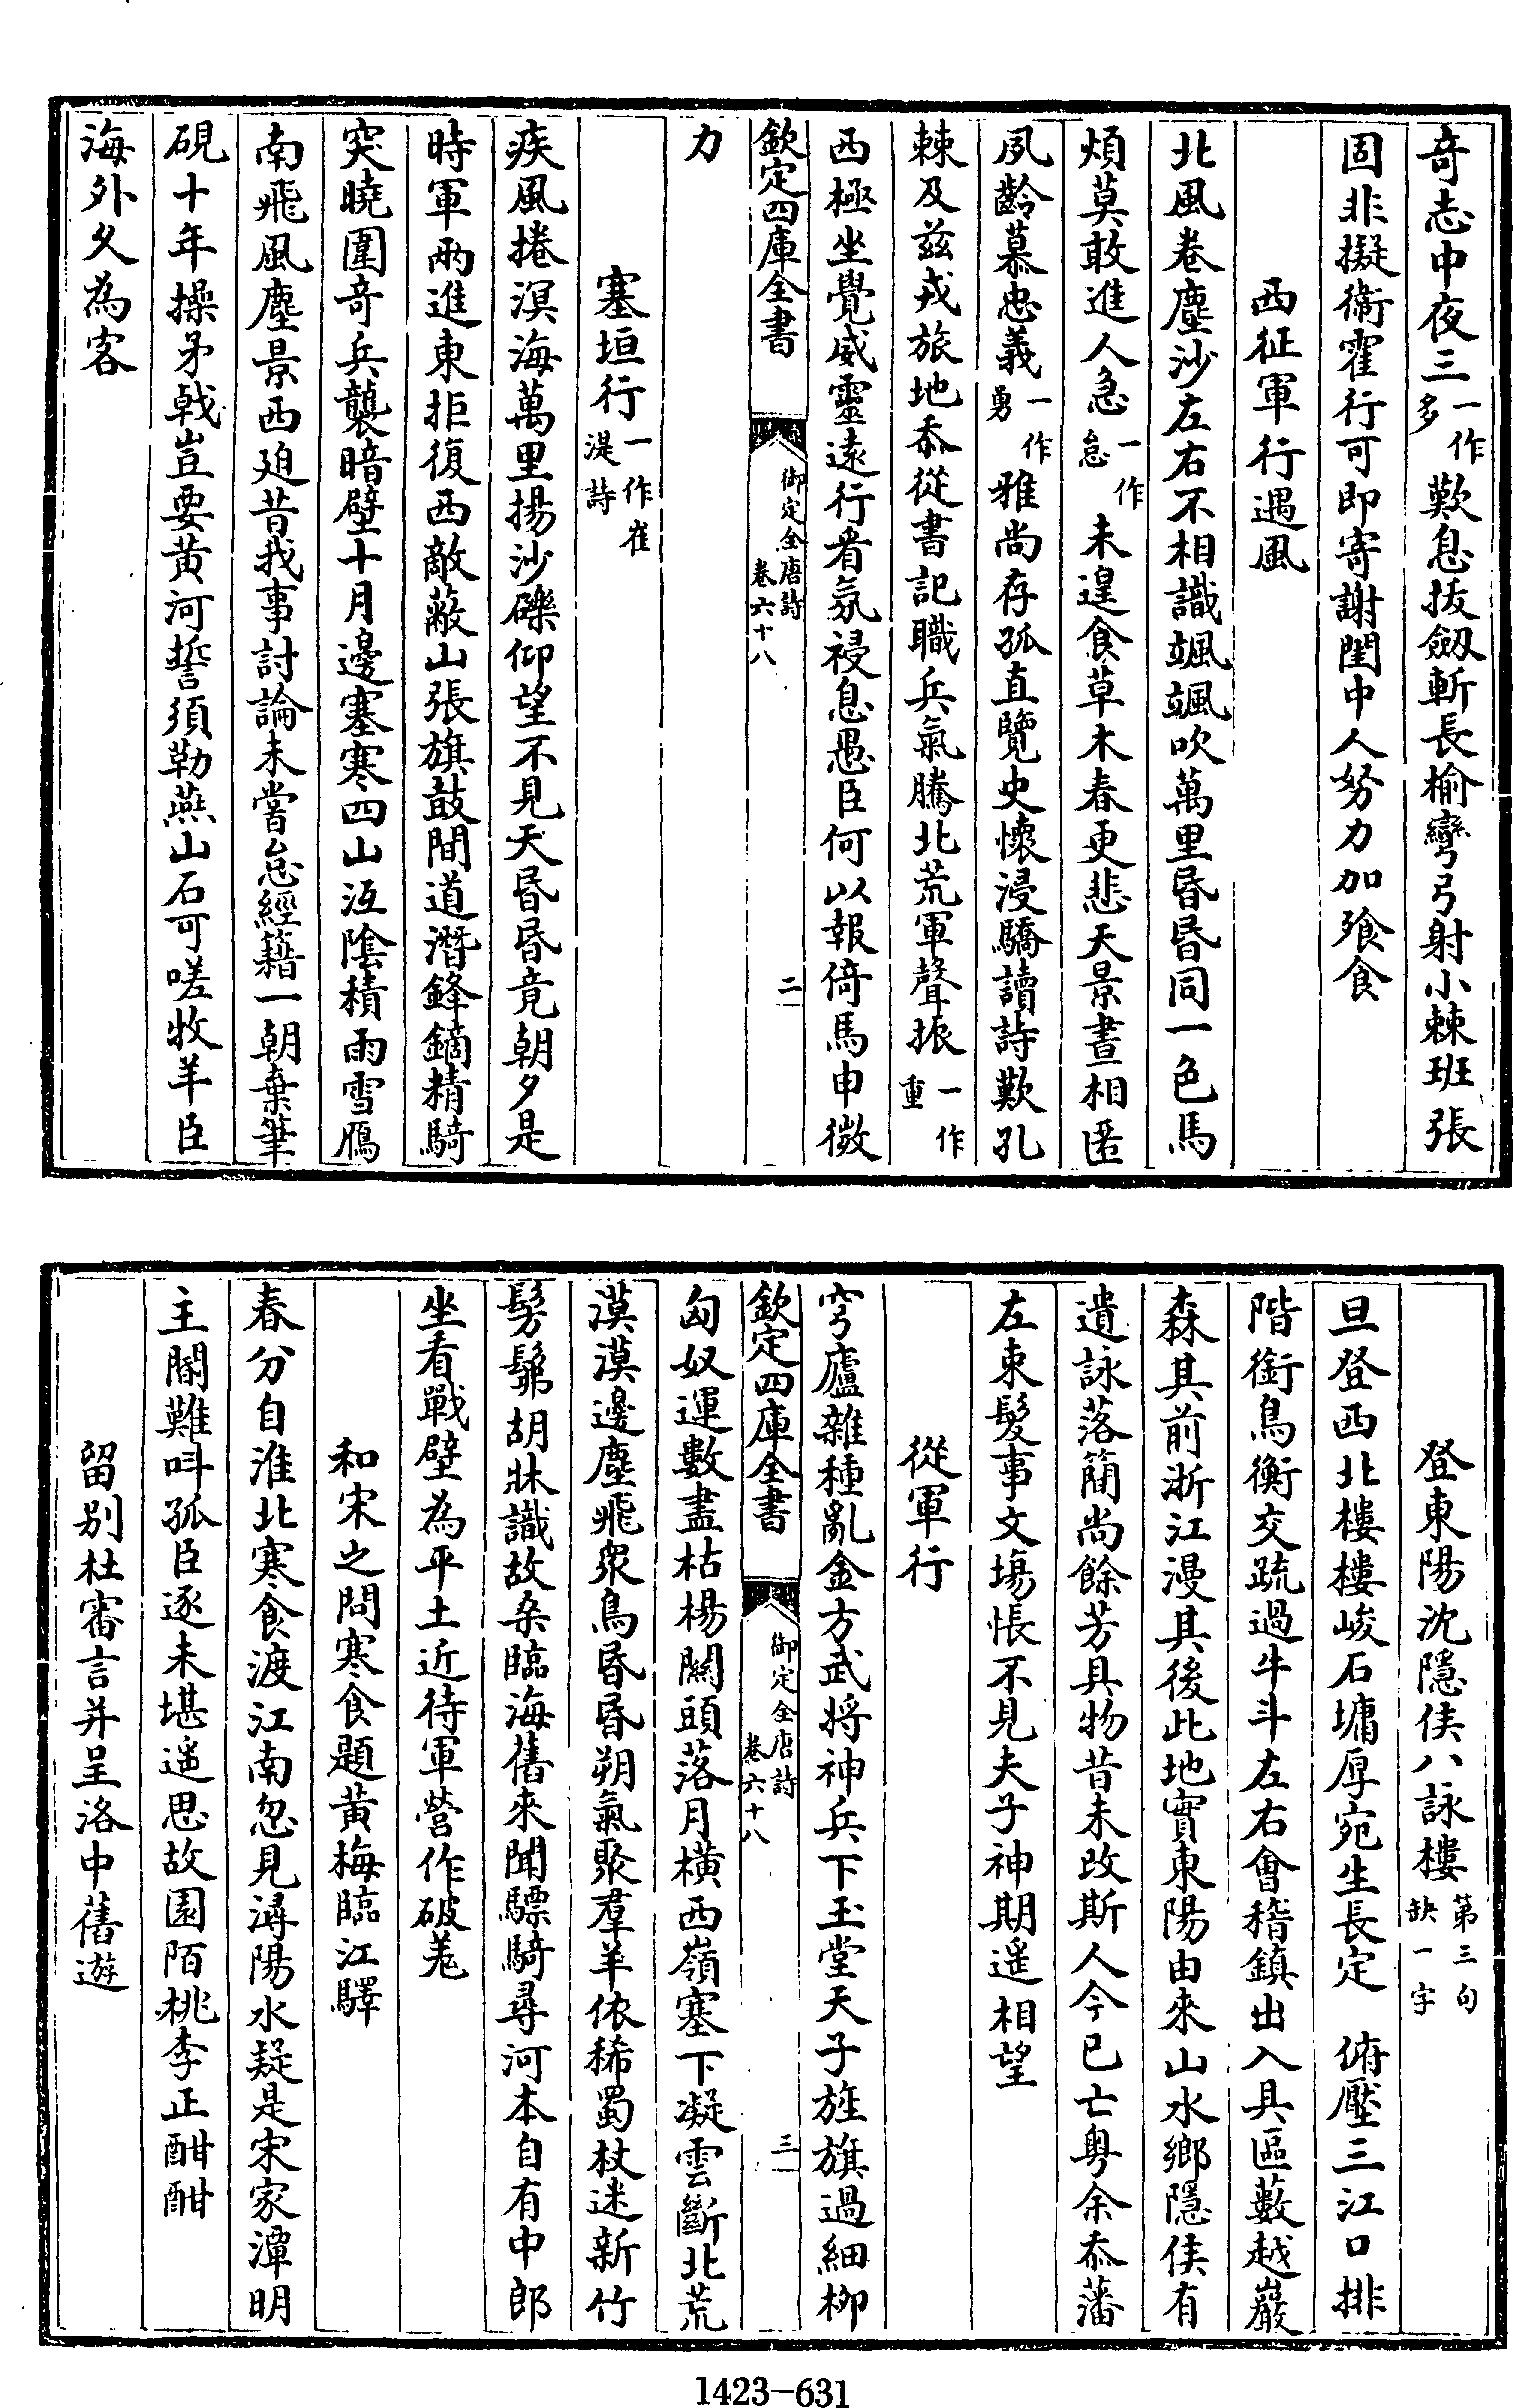 奇志中夜三一作多歎息拔劒斬長榆彎弓射小棘班張
固非擬衞霍行可即寄謝閨中人努力加飱食
西征軍行遇風
北風卷塵沙左右不相識颯颯吹萬里昏昏同一色馬
煩莫敢進人急一作怠未遑食草木春更悲天景晝相匿
夙齡慕忠義一作勇雅尚存孤直覽史懷浸驕讀詩歎孔
棘及兹戎旅地忝從書記職兵氣騰北荒軍聲振一作重
西極坐覺威靈遠行看氛祲息愚臣何以報倚馬申微
欽定四庫全書 御定全唐詩 卷六十八 二
力
塞垣行一作崔湜詩
疾風捲溟海萬里揚沙礫仰望不見天昏昏竟朝夕是
時軍兩進東拒復西敵蔽山張旗鼓間道潛鋒鏑精騎
突曉圍奇兵襲暗壁十月邊塞寒四山沍陰積雨雪鴈
南飛風塵景西廹昔我事討論未嘗怠經籍一朝棄筆
硯十年操矛戟豈要黃河誓須勒燕山石可嗟牧羊臣
海外久為客
登東陽沈隱侯八詠樓第三句缺一字
旦登西北樓樓峻石墉厚宛生長定 俯壓三江口排
階銜鳥衡交疏過牛斗左右會稽鎮出入具區藪越巖
森其前浙江漫其後此地實東陽由來山水鄉隱侯有
遺詠落簡尚餘芳具物昔未改斯人今已亡粵余忝藩
左束髮事文塲悵不見夫子神期遥相望
從軍行
穹廬雜種亂金方武將神兵下玉堂天子旌旗過細柳
欽定四庫全書 御定全唐詩 卷六十八 三
匈奴運數盡枯楊關頭落月橫西嶺塞下凝雲斷北荒
漠漠邊塵飛衆鳥昏昏朔氣聚羣羊依稀蜀杖迷新竹
髣髴胡牀識故桑臨海舊來聞驃騎尋河本自有中郎
坐看戰壁為平土近待軍營作破羗
和宋之問寒食題黃梅臨江驛
春分自淮北寒食渡江南忽見潯陽水疑是宋家潭明
主閽難呌孤臣逐未堪遥思故園陌桃李正酣酣
留别杜審言并呈洛中舊遊
1423-631